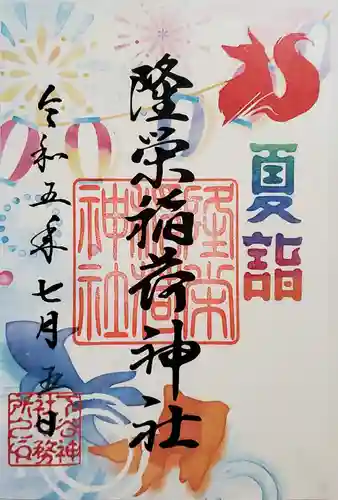 夏詣
隆栄稲荷神社
隆栄
稲荷
神社
令和五年七月五日